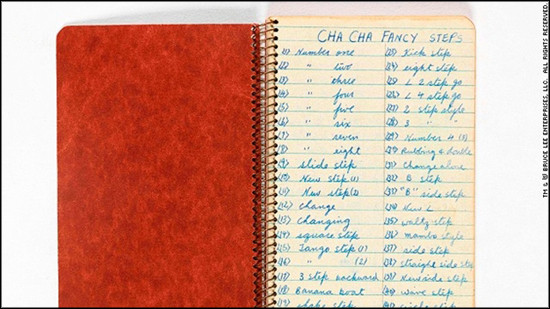 CHA CHA FANCY STEPS
(1) Number one
(2) " two
(3) " three
(4) " four
(5) " five
(6) " six
(7) " seven
(8) " eight
(9) slide step
(10) New step (1)
(11) New step (2)
(12) Change
(13) Changing
(14) square step
(15) Tango step (1)
(16) " (2)
(17) 3 step backward
(18) Banana boat
(19) shake step
(23) Kick step
(24) eight step
(25) L 2 step go
(26) L 4 step go
(27) 2 step single
(28) 3 " "
(29) Number 4 (B)
(30) Rubbing & double
(31) Change alone
(32) B step
(33) "B" side step
(34) New L
(35) waltz step
(36) mambo style
(37) side step
(38) straight side step
(39) sidewards step
(40) wave step
(41) circle step
TM & © BRUCE LEE ENTERPRISES, LLC. ALL RIGHTS RESERVED.